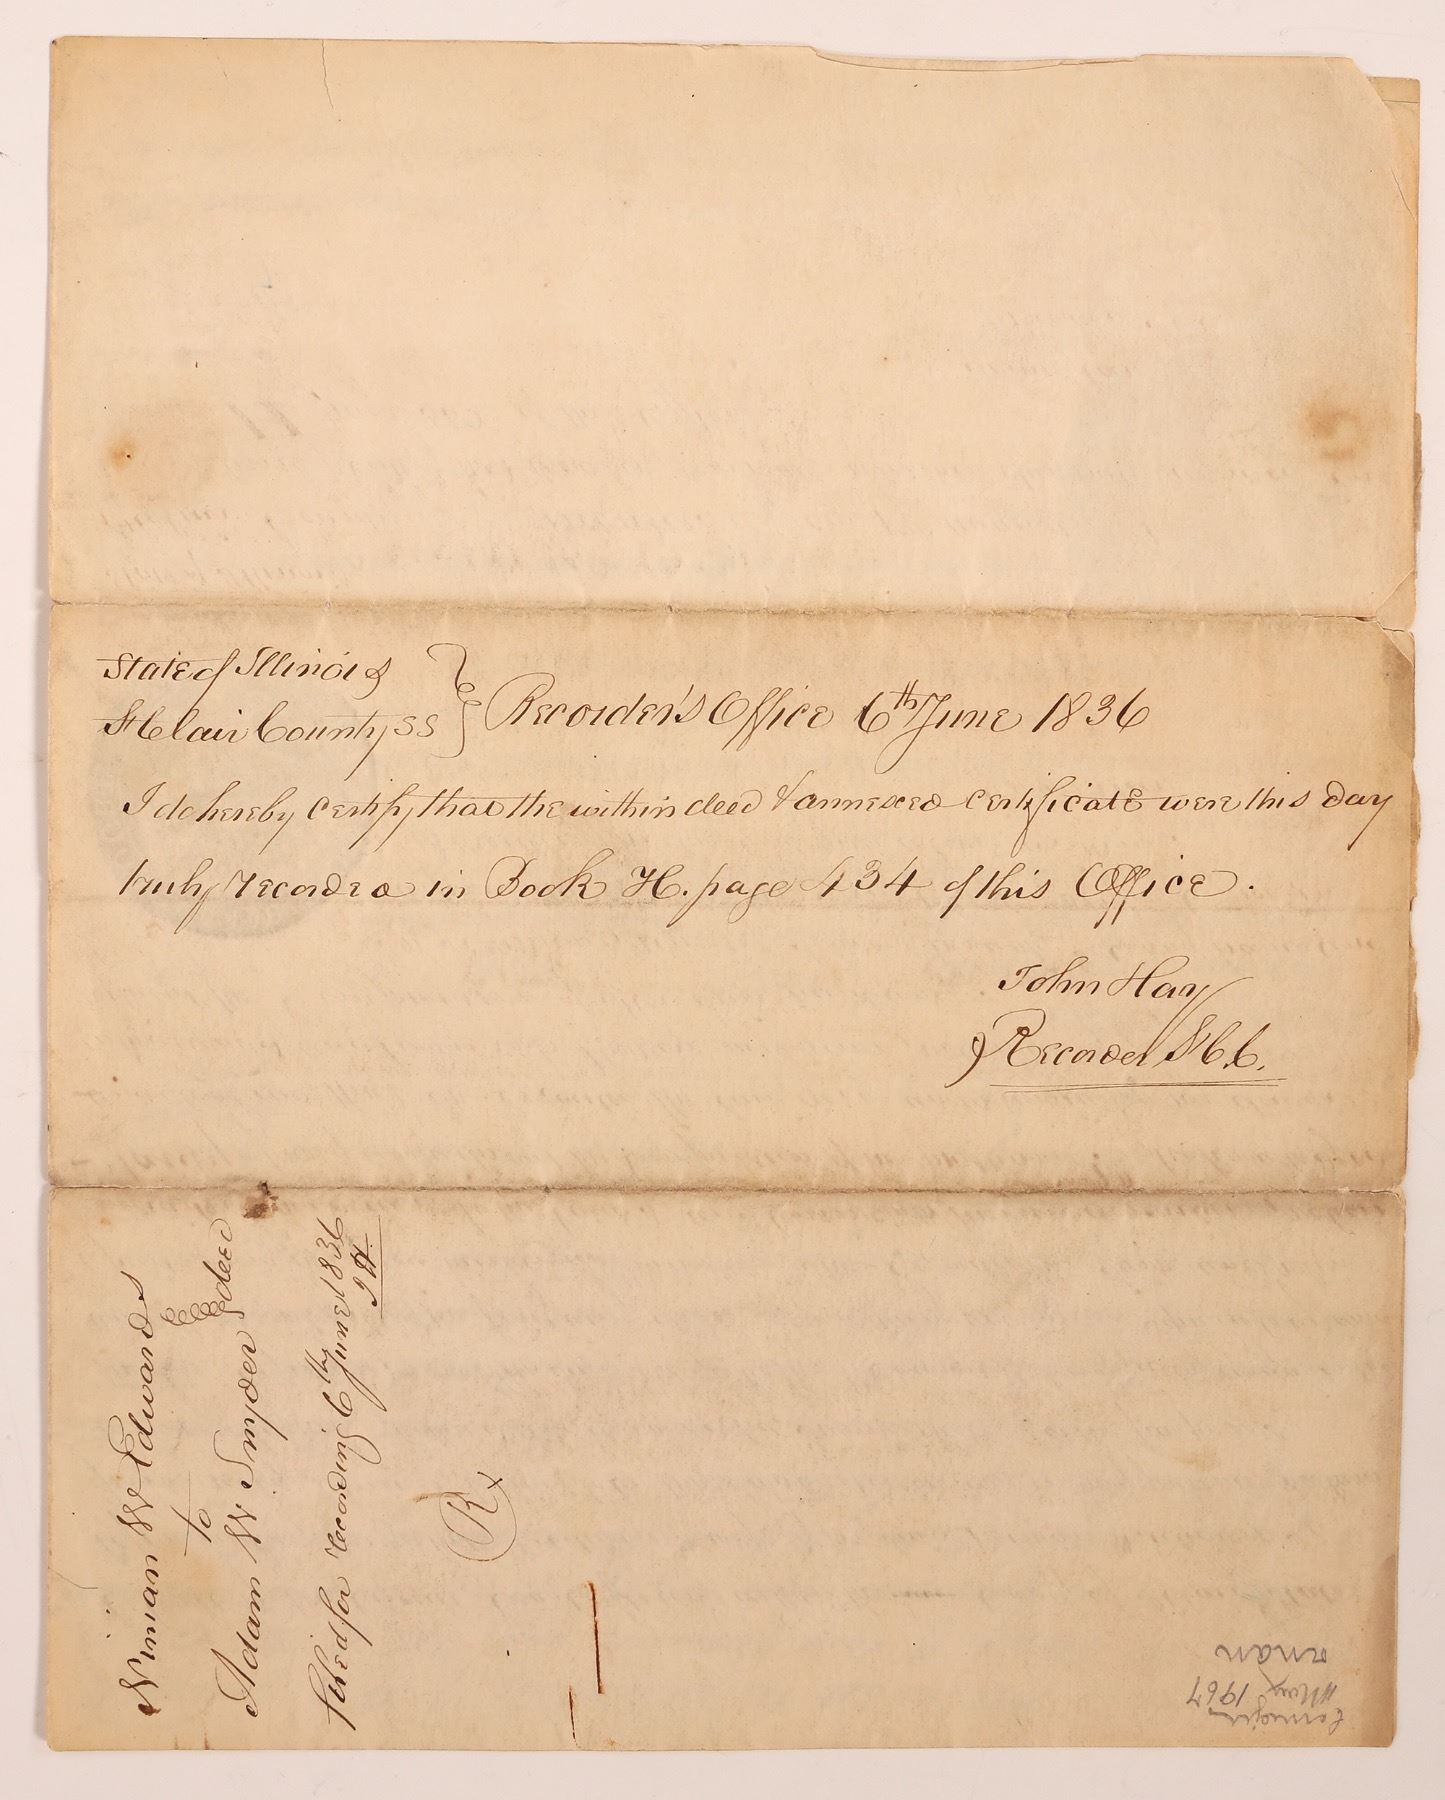 State of Illinois
St Clair County ss } Recorder's Office 6th June 1836
I do hereby certify that the within deed & annexed certificate were this day
truly recorded in Book H. page 434 of this Office.
John Hay
Recorder St C. C.
Ninian W Edwards
to } deed
Adam W Snyder
filed for recording 6th June 1836
J H.
R
May 1967